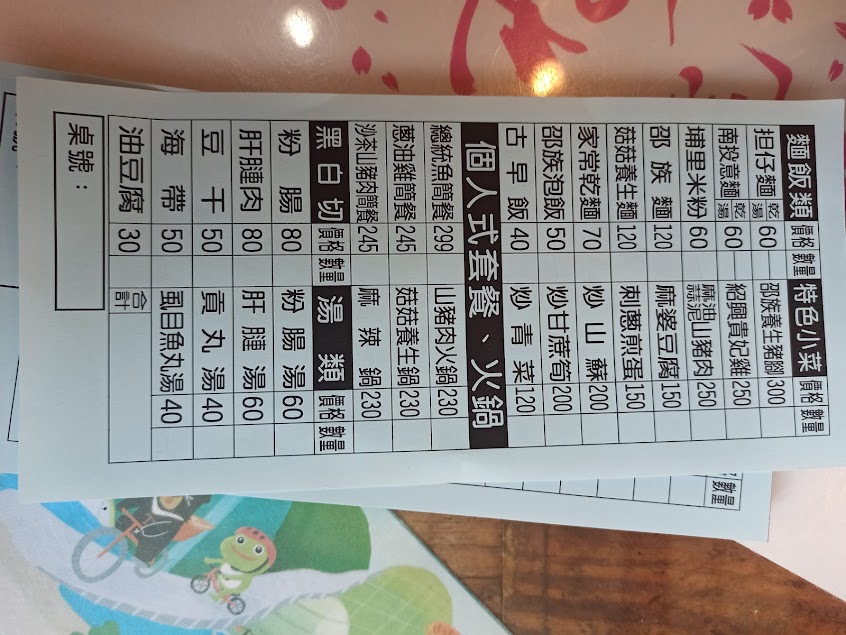 麵飯類 價格 數量 特色小菜 價格 數量
担仔麵 乾 湯 60 邵族養生豬腳 300
南投意麵 乾 湯 60 紹興貴妃雞 250
埔里米粉 60 麻油 蒜泥 山豬肉 250
邵族麵 120 麻婆豆腐 150
菇菇養生麵 120 刺蔥煎蛋 150
家常乾麵 70 炒山蘇 200
邵族泡飯 50 炒甘蔗筍 200
古早飯 40 炒青菜 120
個人式套餐、火鍋
總統魚簡餐 299 山豬肉火鍋 230
蔥油雞簡餐 245 菇菇養生鍋 230
沙茶山豬肉簡餐 245 麻辣鍋 230
黑白切 價格 數量 湯類 價格 數量
粉腸 80 粉腸湯 60
肝膁肉 80 肝膁湯 60
豆干 50 貢丸湯 40
海帶 50 虱目魚丸湯 40
油豆腐 30 合計
桌號：
數量